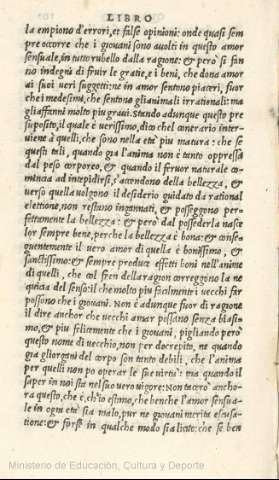 LIBRO
la empiono d'errori, et false opinioni: onde quasi sem
pre occorre che i giovani sono avolti in questo amor
sensuale, in tutto rubello dalla ragione: & però si fan
no indegni di fruir le gratie, et i beni, che dona amor
ai suoi veri suggetti: ne in amor sentono piaceri, fuor
che i medesimi, che sentono gli animali irrationali: ma
gli affanni molto piu gravi. Stando adunque questo pre
suposito, il quale è verissimo, dico che'l contrario inter
viene à quelli, che sono nella età piu matura: che se
questi tali, quando gia l'anima non è tanto oppressa
dal peso corporeo, & quando il fervor naturale co-
mincia ad intepidirsi, s'accendono della bellezza, &
verso quella volgono il desiderio guidato da rational
elettione, non restano ingannati, & posseggono per-
fettamente la bellezza: & però dal possederla nasce
lor sempre bene, perche la bellezza è bona: & conse-
guentemente il vero amor di quella è bonissimo, &
santissimo: & sempre produce effetti boni nell'anime
di quelli, che col fren della ragion correggono la ne
quicia del senso: il che molto piu facilmente i vecchi far
possono che i giovani. Non è adunque fuor di ragione
il dire anchor che vecchi amar possano senza biasi-
mo, & piu felicemente che i giovani, pigliando però
questo nome di vecchio, non per decrepito, ne quando
gia gli organi del corpo son tanto debili, che l'anima
per quelli non po operar le sue virtù: ma quando il
saper in noi sta nel suo vero vigore: Non tacerò ancho-
ra questo, che è, ch'io estimo, che benche l'amor sensua-
le in ogni età sia malo, pur ne giovani merita escusa-
tione: & forse in qualche modo sia licito: che se ben
Ministerio de Educación, Cultura y Deporte